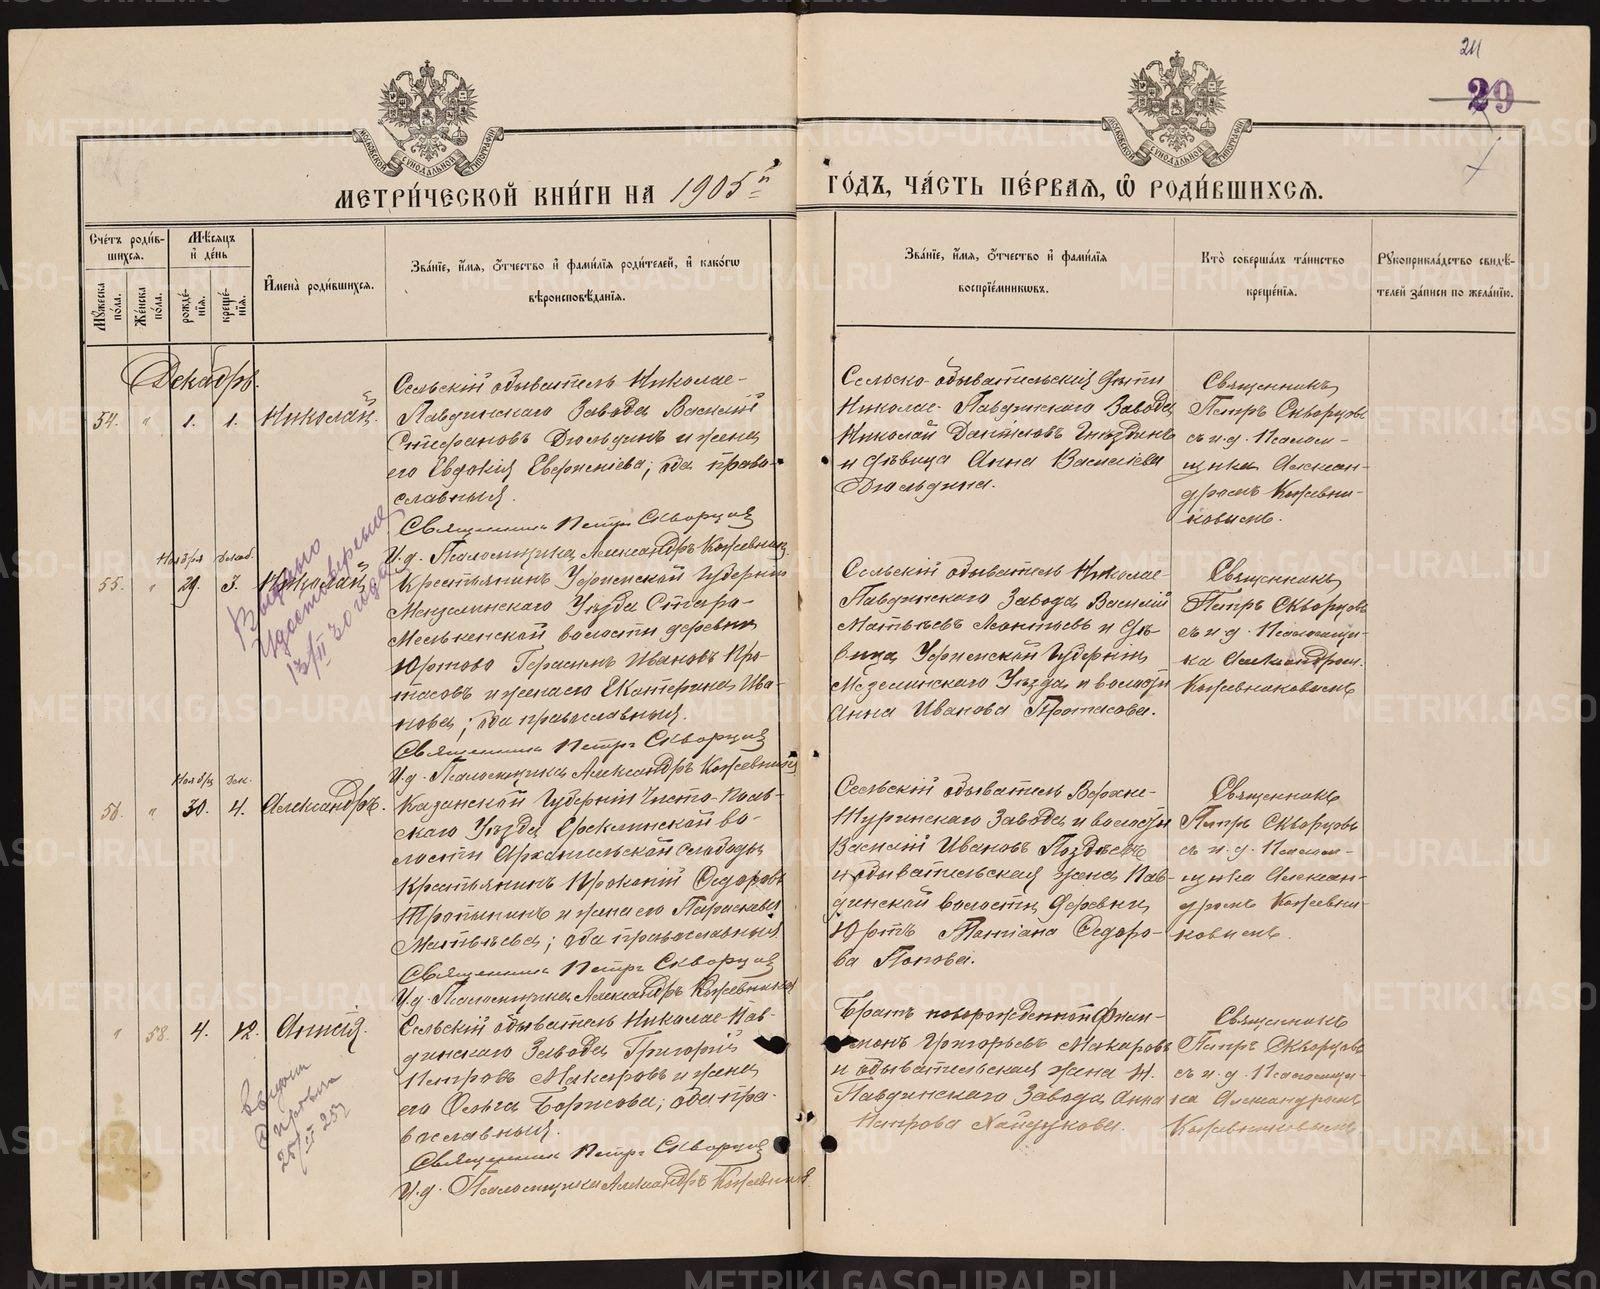 24
29
МОСКОВСКОЙ СУНОДАЛЬНОЙ ТИПОГРАФІИ
МОСКОВСКОЙ СУНОДАЛЬНОЙ ТИПОГРАФІИ
МЕТРИ́ЧЕСКОЙ КНИ́ГИ НА 1905й
ГО́ДЪ, ЧА́СТЬ ПЕ́РВАЯ, Ѽ РОДИ́ВШИХСЯ.
Сче́тъ роди́вшихся.
Мꙋ́жеска по́ла.
Же́нска по́ла.
Мѣ́сяцъ и҆ де́нь
рожде́нїя.
креще́нїя.
И҆мена̀ роди́вшихся.
Зва́нїе, и҆́мя, ѻ҆́тчество и҆ фами́лїя роди́телей, и҆ како́гѡ
вѣроисповѣ́данїя.
Зва́нїе, и҆́мя, ѻ҆́тчество и҆ фами́лїя
воспрїе́мникѡвъ.
Кто̀ соверша́лъ та́инство
креще́нїя.
Рꙋкоприкла́дство свидѣ́-
телей за́писи по жела́нїю.
Декабрь.
54. " 1. 1. Николай.
Сельскій обыватель Николае-
Павдинскаго Завода Василій
Стефановъ Дюльдинъ и жена
его Евдокія Евфиміева; оба право-
славныя.
Священникъ Петръ Скворцовъ
И.д. Псаломщика Александръ Кожевник.
Сельско-обывательскія дѣти
Николае-Павдинскаго Завода
Николай Даниловъ Гнѣздинъ
и дѣвица Анна Васильева
Дюльдина.
Священникъ
Петръ Скворцовъ
съ и.д. Псалом-
щика Алексан-
дромъ Кожевни-
ковымъ.
Ноября Декаб.
55. " 29. 3. Николай
Выдано
Удостовереніе
13/II 30 года
Крестьянинъ Уфимской Губерніи
Мензелинскаго Уѣзда Старо-
Мелькенской волости деревни
Юртово Герасимъ Ивановъ Про-
тасовъ и жена его Екатерина Ива-
нова; оба православныя.
Священникъ Петръ Скворцовъ
И.д. Псаломщика Александръ Кожевник
Сельскій обыватель Николае-
Павдинскаго Завода Василій
Матвѣевъ Леонтьевъ и дѣ-
вица Уфимской Губерніи
Мезелинскаго Уѣзда и волости
Анна Иванова Протасова.
Священникъ
Петръ Скворцовъ
съ и.д. Псаломщи-
ка Александром.
Кожевниковымъ
Ноябрь Дек.
56. " 30. 4. Александръ.
Казанской Губерніи Чисто-поль-
скаго Уѣзда
волости Архангельской Слободы
Крестьянинъ Прокопій Ѳедоровъ
Тропынинъ и жена его Параскева
Матвѣева; оба православныя
Священникъ Петръ Скворцовъ
И.д. Псаломщика Александръ Кожевник
Сельскій обыватель Верхне-
Туринскаго Завода и волости
Василій Ивановъ Поздѣевъ
и обывательская жена Пав-
динской волости деревни
Юртъ Татіана Ѳедоро-
ва Попова.
Священникъ
Петръ Скворцовъ
съ и.д. Псалом-
щика Алексан-
дромъ Кожевни-
ковымъ.
" 58. 4. 12. Анисія.
Выдана
справка
Сельскій обыватель Николае-Пав-
динскаго Завода Григорій
Петровъ Макаровъ и жена
его Ольга Борисова; оба пра-
вославныя.
Священникъ Петръ Скворцовъ
И.д. Псаломщика Александръ Кожевник
Братъ новорожденной Фили-
монъ Григорьевъ Макаровъ
и обывательская жена Н.
Павдинскаго Завода Анна
Петрова Хайдукова.
Священникъ
Петръ Скворцовъ
съ и.д. Псаломщи-
ка Александромъ
Кожевниковымъ
METRIKI.GASO-URAL.RU